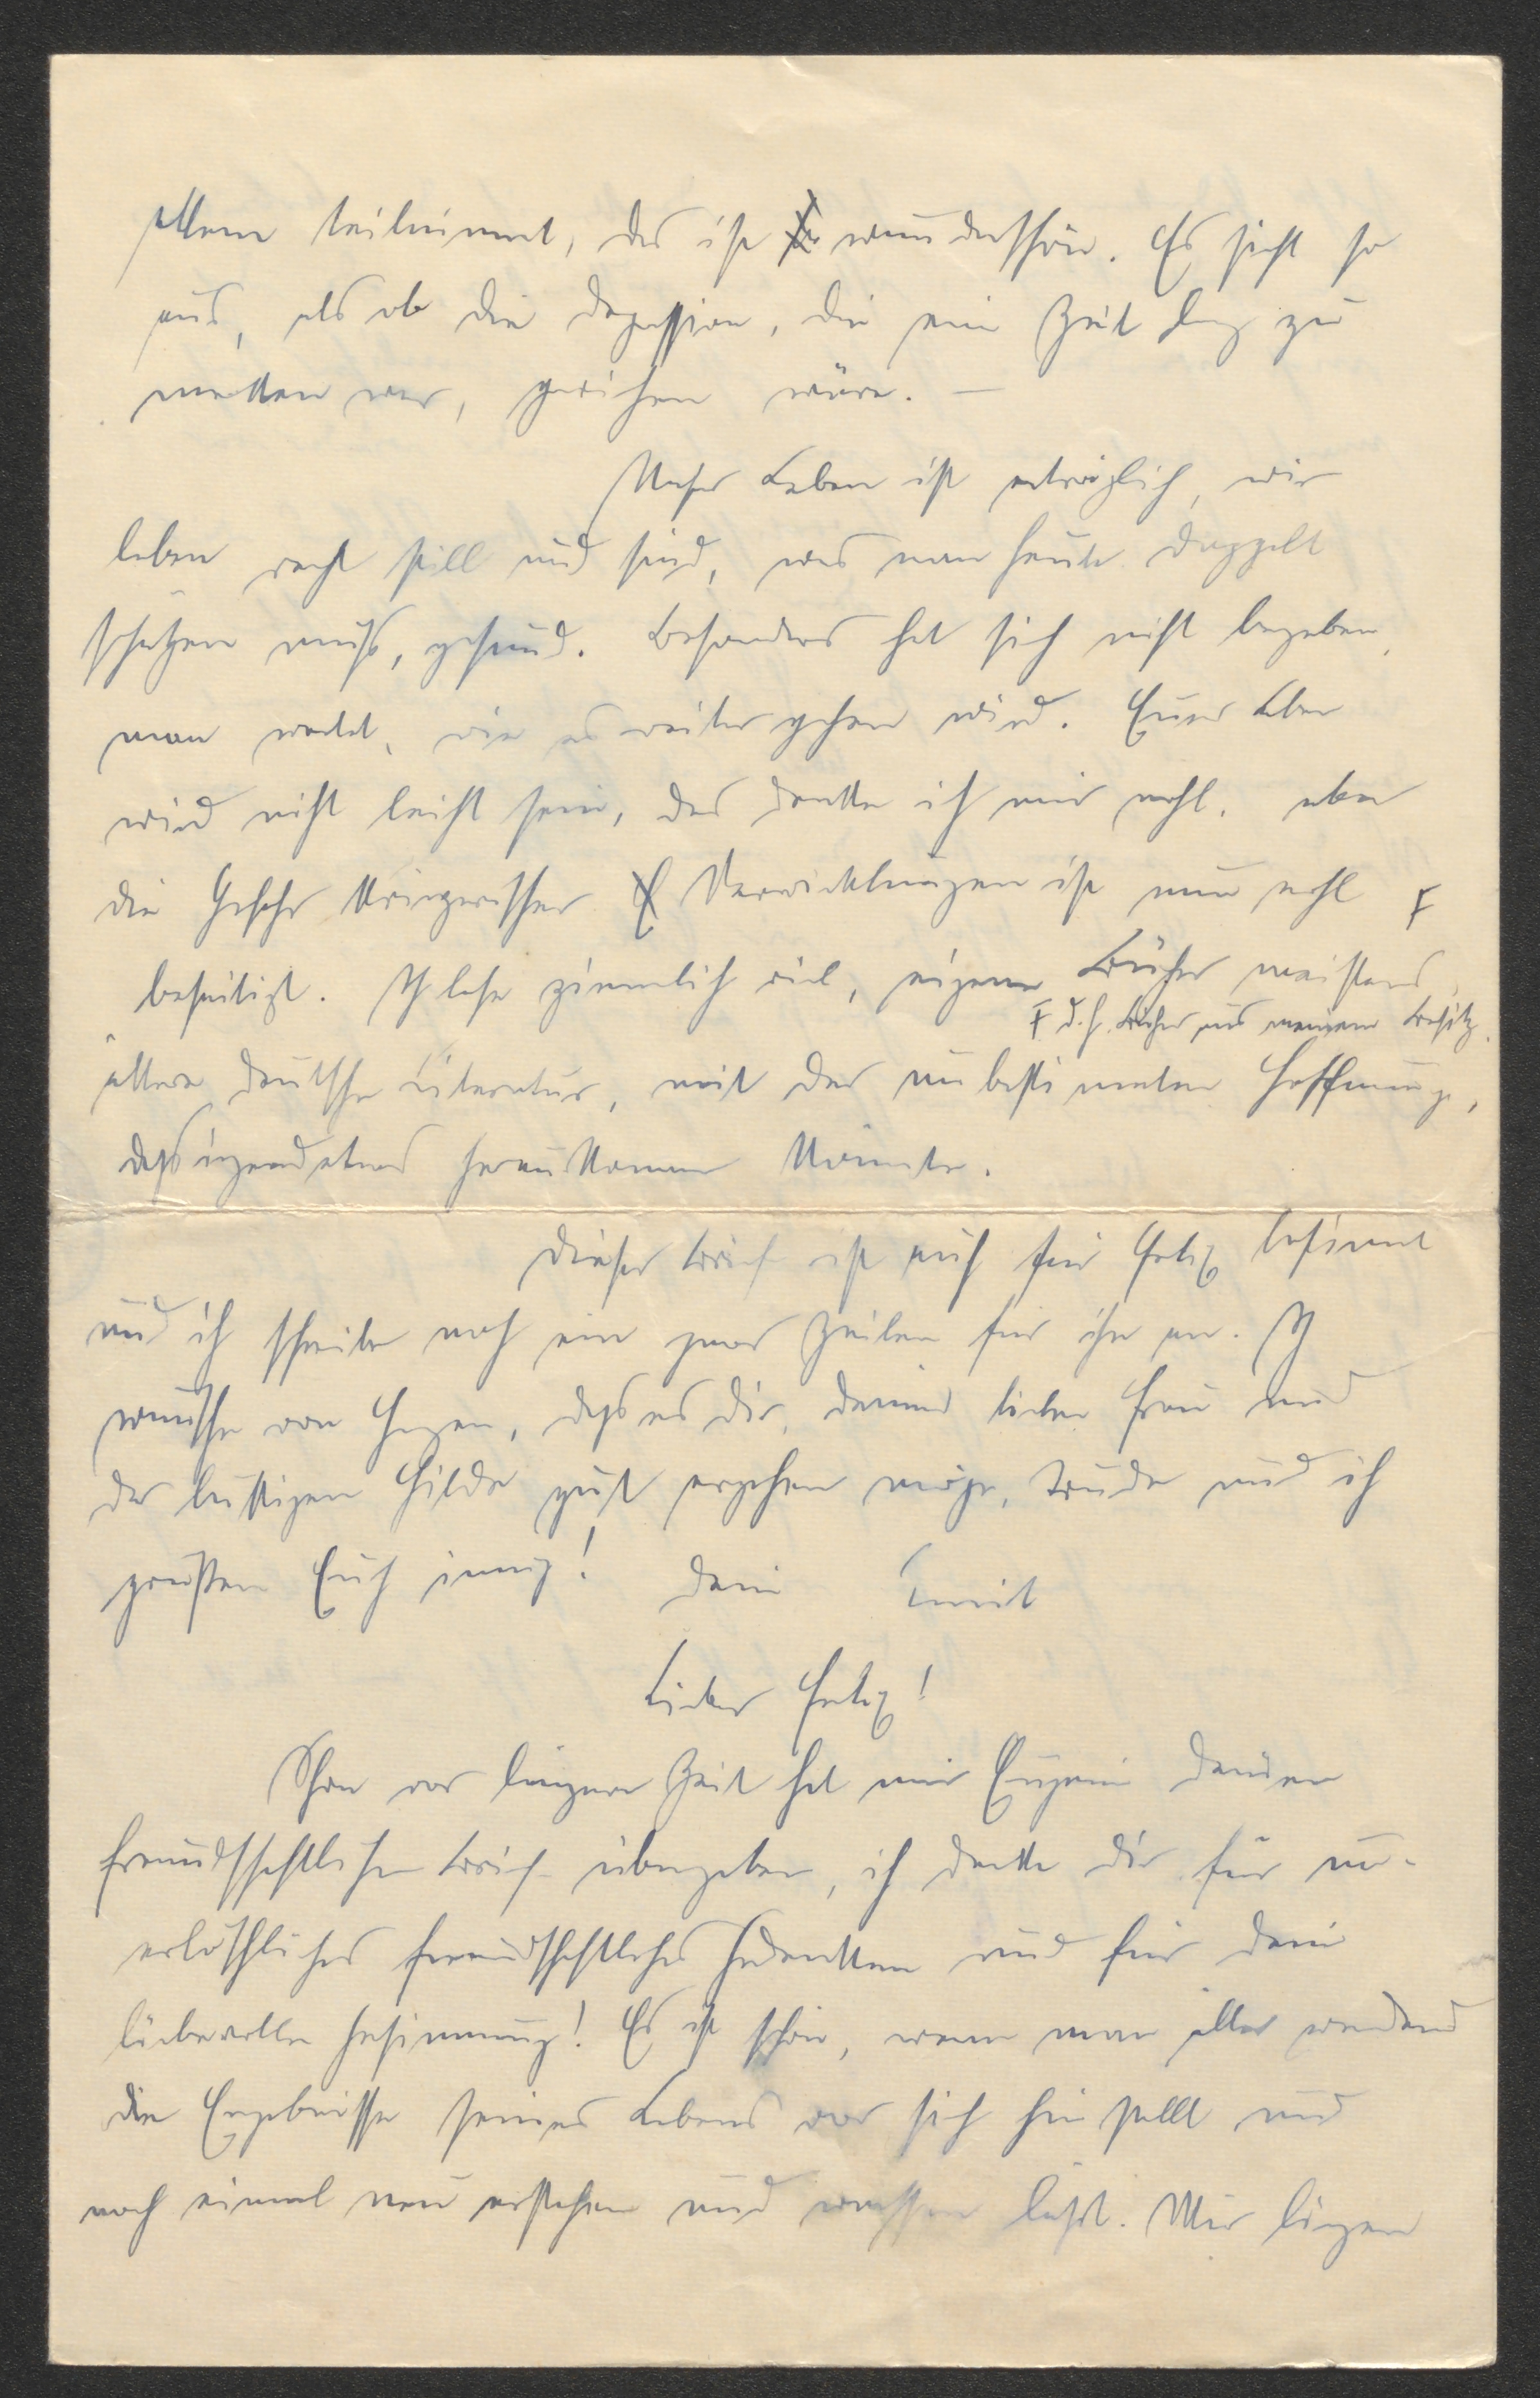 allem teilnimmt, das ist wunderschön. Es sieht so
aus, als ob die Depression, die eine Zeit lang zu
merken war, gewichen wäre. —
Unser Leben ist erträglich, wir
leben recht still und sind, was man heute doppelt
schätzen muß, gesund. Besonders hat sich nicht begeben,
man wartet, wie es weiter gehen wird. Euer Leben
wird nicht leicht sein, das denke ich mir wohl, aber
die Gefahr kriegerischer Verwicklungen ist nun wohl
beseitigt. Ich lese ziemlich viel, eigene Bücher meistens,
F d. h. Bücher aus meinem Besitz.
ältere deutsche Literatur, mit der unbestimmten Hoffnung,
daß irgend etwas herauskommen könnte.
Dieser Brief ist auch für Felix bestimmt
und ich schreibe noch ein paar Zeilen für ihn an. Ich
wünsche von Herzen, daß es Dir, Deiner lieben Frau und
der lustigen Hilde gut ergehen möge, Trude und ich
grüßen Euch innig! Dein Emil
Lieber Felix!
Schon vor längerer Zeit hat mir Eugenie Deinen
freundschaftlichen Brief übergeben, ich danke Dir für un-
erlöschliches freundschaftliches Gedenken und für Deine
liebevolle Gesinnung! Es ist schön, wenn man älter werdend
die Ergebnisse seines Lebens vor sich hin stellt und
noch einmal neu erstehen und wachsen läßt. Mir liegen